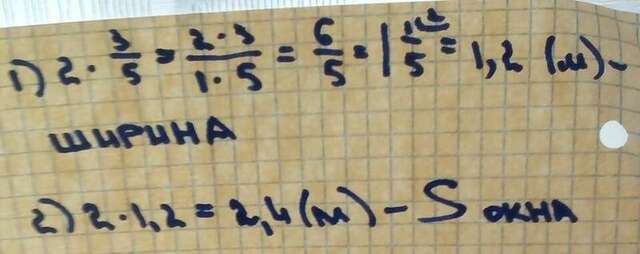 1) 2 · 3/5 = 2·3/1·5 = 6/5 = 1 1/5 = 1,2 (м) -
ШИРИНА
2) 2·1,2 = 2,4 (м) - S ОКНА